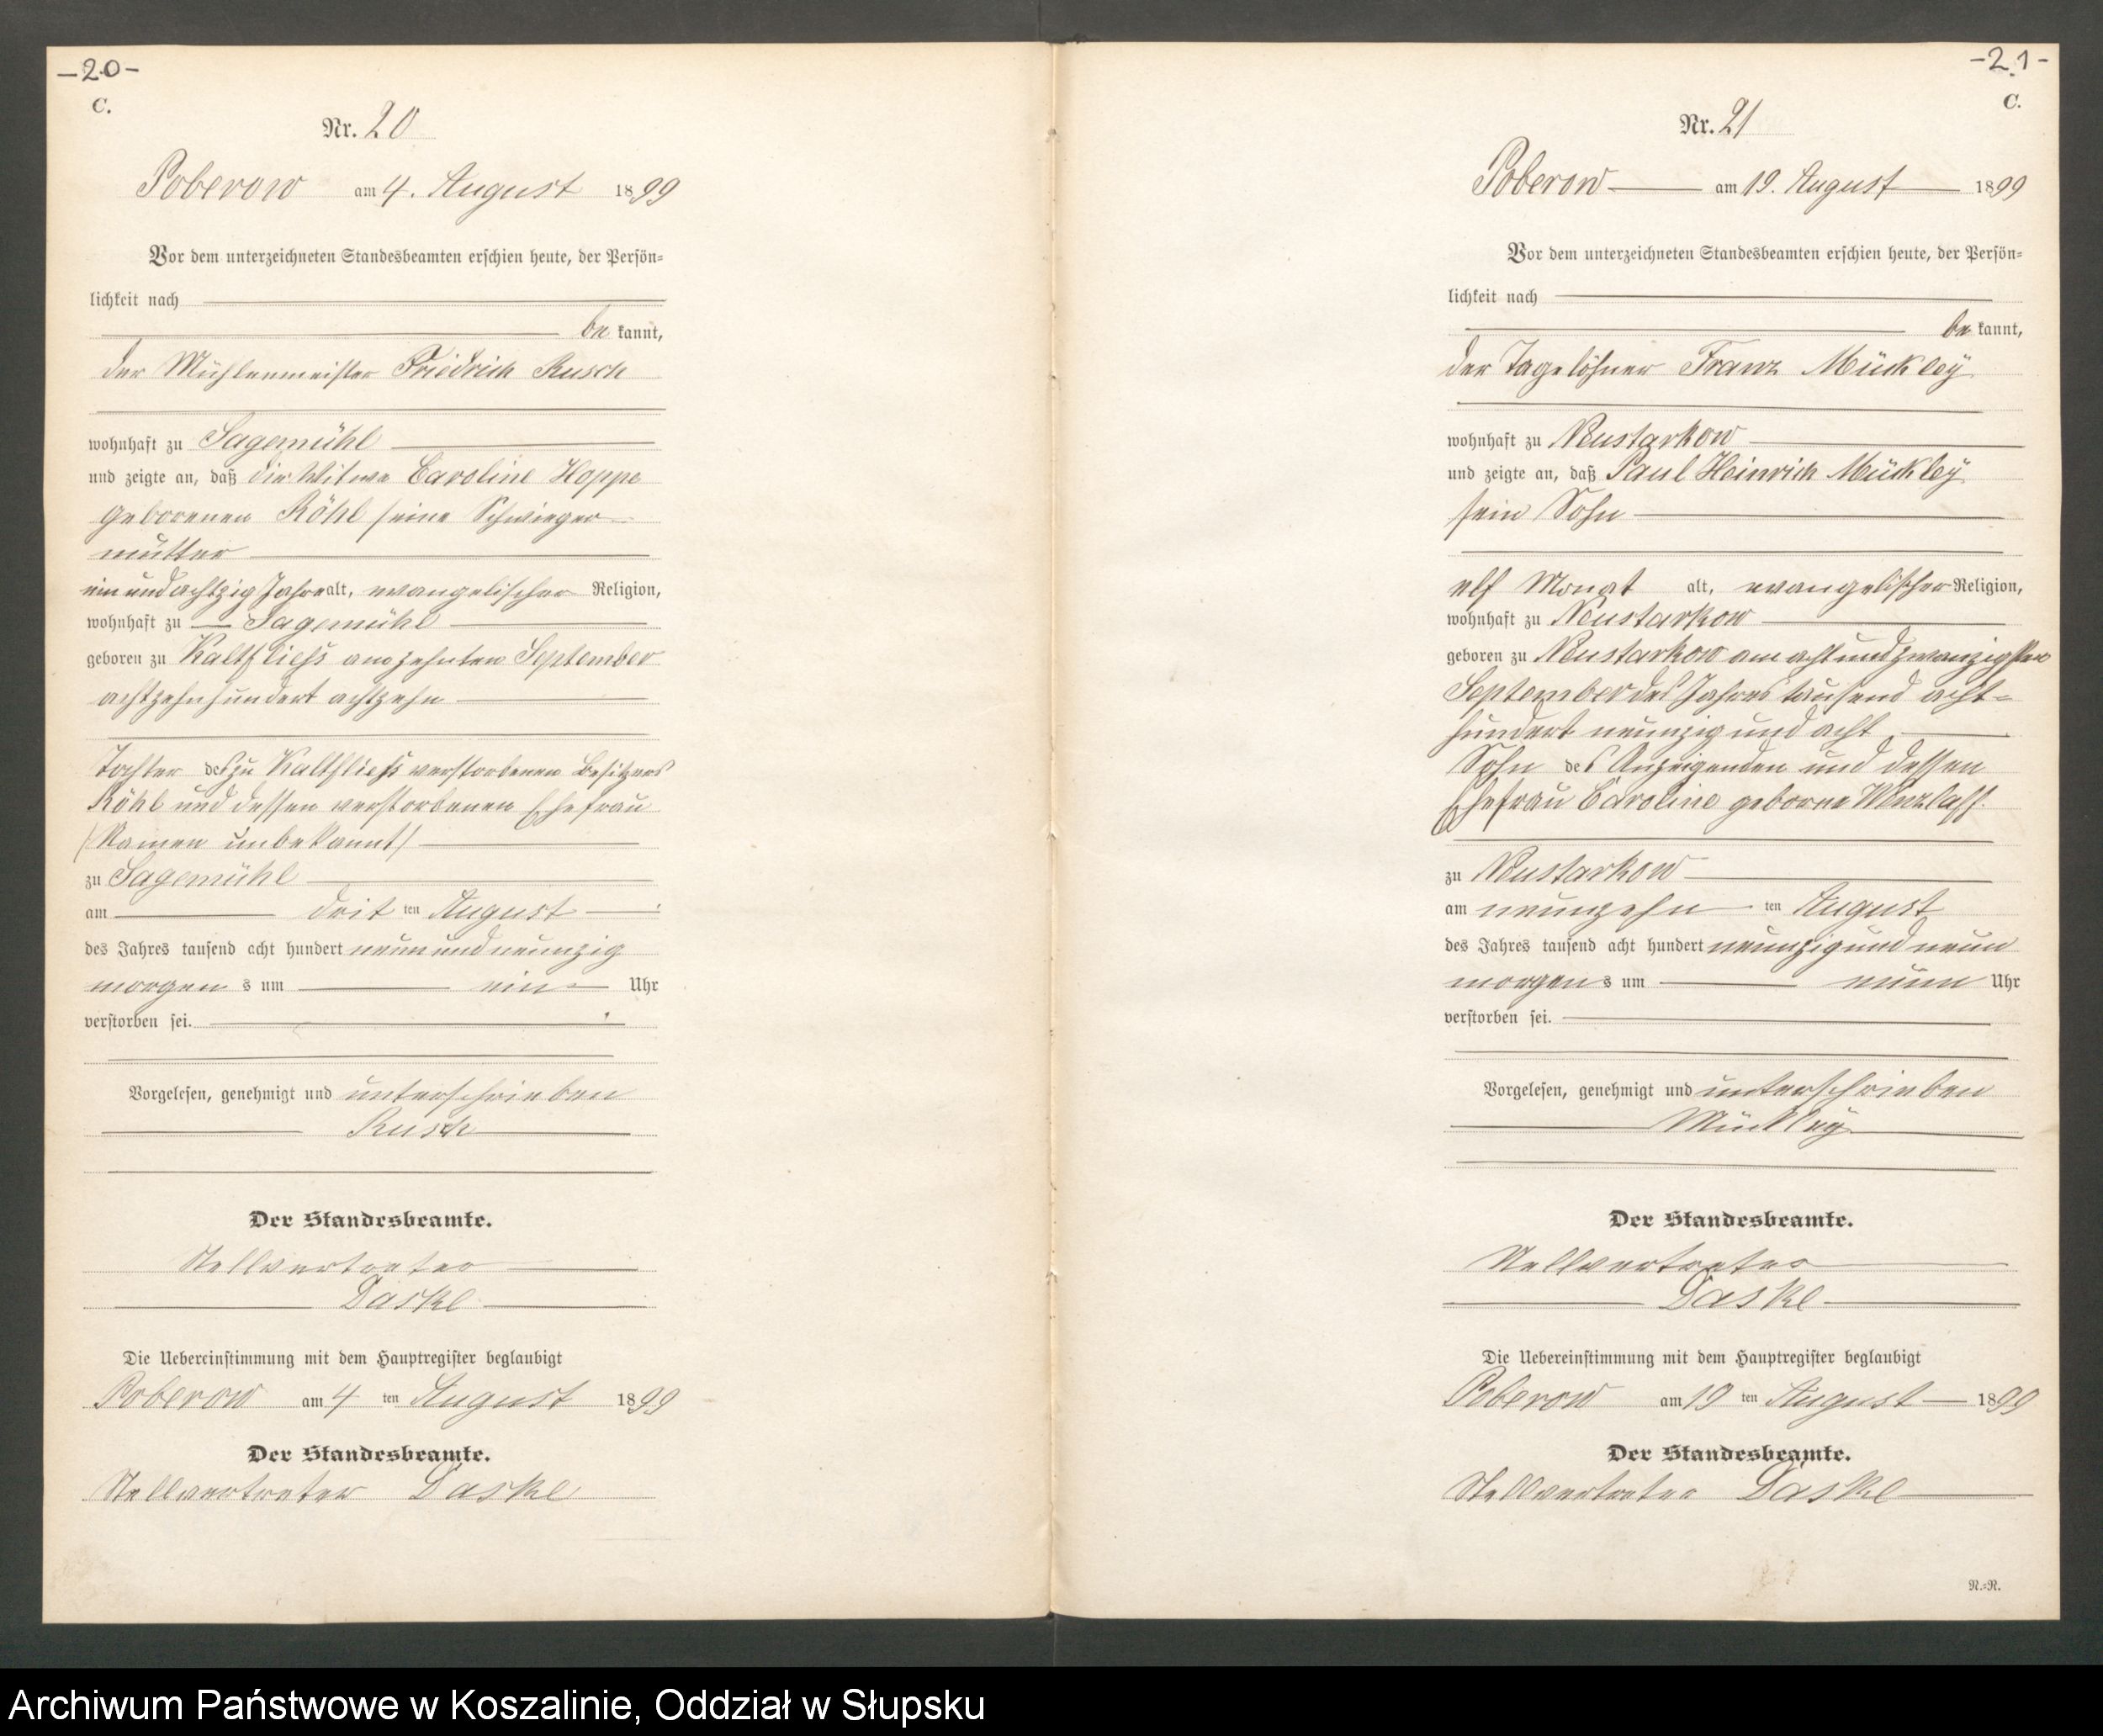 -20-
C.
Nr. 20
Poberow am 4. August 1899
Vor dem unterzeichneten Standesbeamten erschien heute, der Persön-
lichkeit nach
be kannt,
der Mühlenmeister Friedrich Rusch
wohnhaft zu Sagemühl
und zeigte an, daß die Witwe Caroline Hoppe
geborenen Röhl seine Schwieger-
mutter
einundachtzig Jahre alt, evangelischer Religion,
wohnhaft zu Sagemühl
geboren zu Kaltfliess am zehnten September
achtzehnhundert achtzehn
Tochter des zu Kaltfliess verstorbenen Besitzers
Röhl und dessen verstorbenen Ehefrau
(Namen unbekannt)
zu Sagemühl
am dritten August
des Jahres tausend acht hundert neunundneunzig
morgens um ein Uhr
verstorben sei.
Vorgelesen, genehmigt und unterschrieben
Rusch
Der Standesbeamte.
Stellvertreter
Daske
Die Uebereinstimmung mit dem Hauptregister beglaubigt
Poberow am 4 ten August 1899
Der Standesbeamte.
Stellvertreter Daske
-21-
C.
Nr. 21
Poberow am 19. August 1899
Vor dem unterzeichneten Standesbeamten erschien heute, der Persön-
lichkeit nach
be kannt,
der Tagelöhner Franz Mückley
wohnhaft zu Neustarkow
und zeigte an, daß Paul Heinrich Mückley
sein Sohn
elf Monat alt, evangelischer Religion,
wohnhaft zu Neustarkow
geboren zu Neustarkow am achtundzwanzigsten
September des Jahres tausend acht-
hundert neunzig und acht
Sohn des Anzeigenden und dessen
Ehefrau Caroline geborne Wenzlaff.
zu Neustarkow
am neunzehn ten August
des Jahres tausend acht hundert neunzig und neun
morgens um neun Uhr
verstorben sei.
Vorgelesen, genehmigt und unterschrieben
Mückley
Der Standesbeamte.
Stellvertreter
Daske
Die Uebereinstimmung mit dem Hauptregister beglaubigt
Poberow am 19 ten August 1899
Der Standesbeamte.
Stellvertreter Daske
N.=N.
Archiwum Państwowe w Koszalinie, Oddział w Słupsku